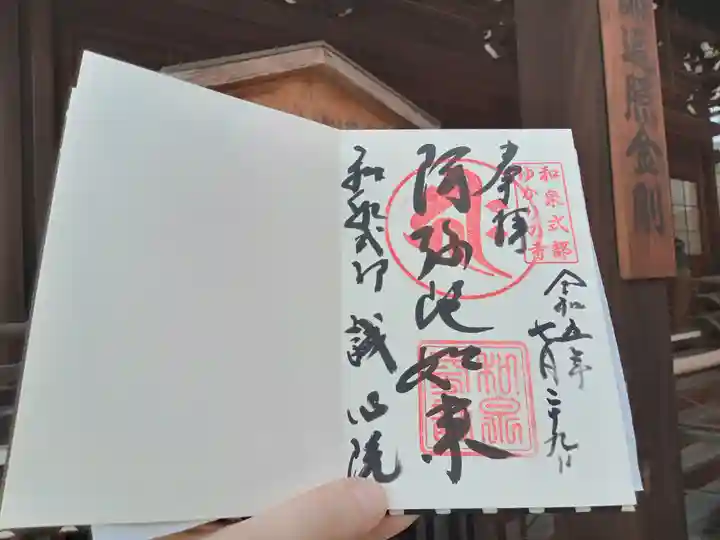 和泉式部
ゆかりの寺
奉拝
令和五年
七月二十九日
阿弥陀如来
和泉式部 誠心院
和泉
照金剛